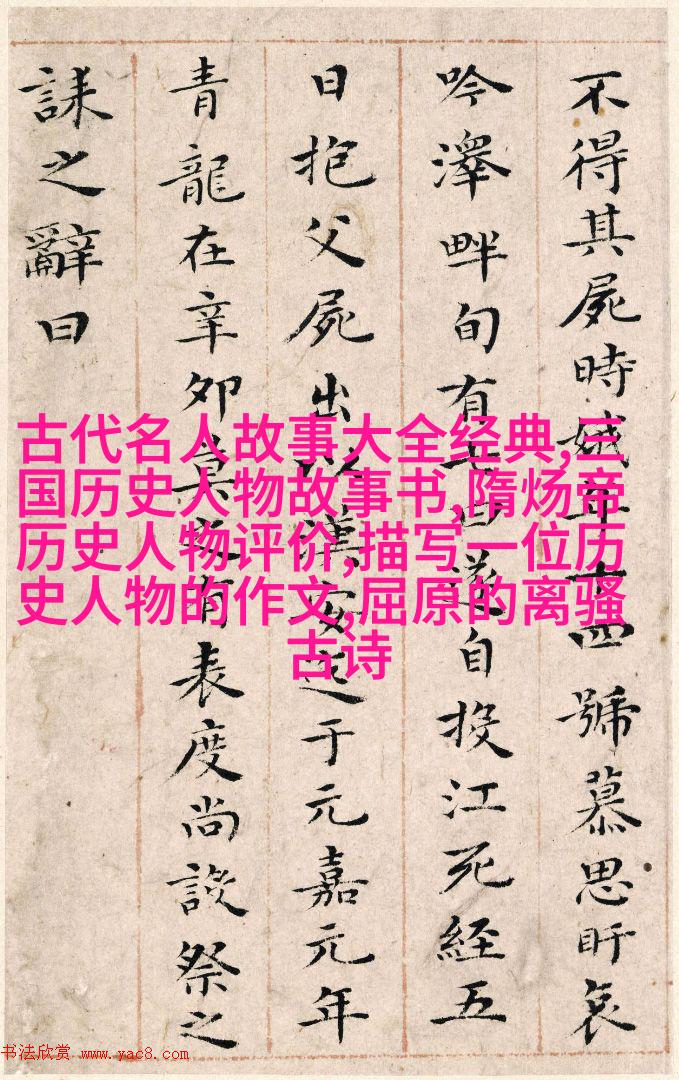 不得其屍時娥年十四號慕思盱哀
吟澤畔旬有七日遂自投江死經五
日抱父屍出以漢安迄于元嘉元年
青龍在辛卯莫之有表度尚設祭之
誄之辭曰
古代名人故事大全经典,三
国历史人物故事书,隋炀帝
历史人物评价,描写一位历
史人物的作文,屈原的离骚
古诗
书法欣赏 www.yac8.com